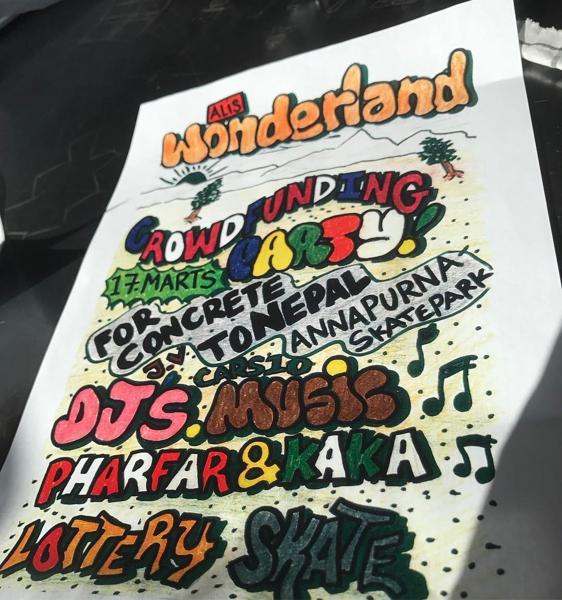 ALIS
Wonderland
CROWDFUNDING
PARTY!
17. MARTS
FOR CONCRETE
TO NEPAL
ANNAPURNA
SKATEPARK
J.V CARS10
DJ'S. MUSIC
PHARFAR & KAKA
LOTTERY SKATE